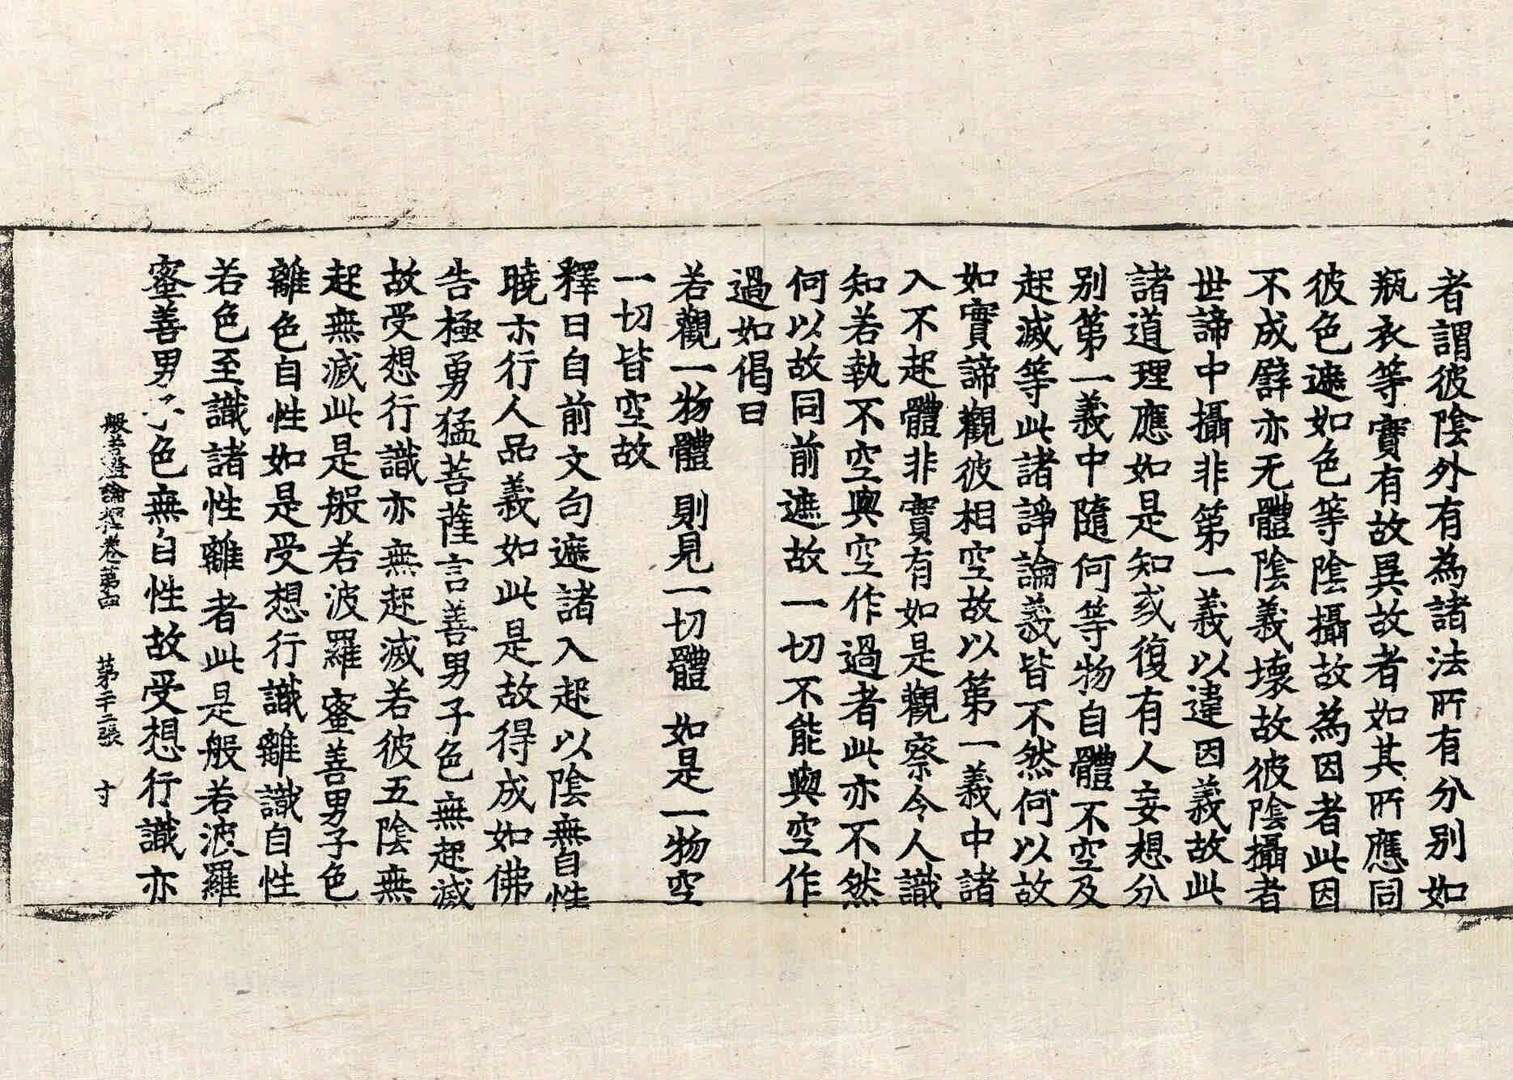 者謂彼陰外有為諸法所有分别如
瓶衣等實有故異故者如其所應同
彼色遮如色等陰攝故為因者此因
不成辟亦无體陰義壞故彼陰攝者
世諦中攝非第一義以違因義故此
諸道理應如是知或復有人妄想分
别第一義中隨何等物自體不空及
起滅等此諸諍論義皆不然何以故
如實諦觀彼相空故以第一義中諸
入不起體非實有如是觀察令人識
知若執不空與空作過者此亦不然
何以故同前遮故一切不能與空作
過如偈曰
若觀一物體 則見一切體 如是一物空
一切皆空故
釋曰自前文句遮諸入起以陰無自性
曉示行人品義如此是故得成如佛
告極勇猛菩薩言善男子色無起滅
故受想行識亦無起滅若彼五陰無
起無滅此是般若波羅蜜善男子色
離色自性如是受想行識離識自性
若色至識諸性離者此是般若波羅
蜜善男色無自性故受想行識亦
般若燈論釋卷第四 第二十二張 寸